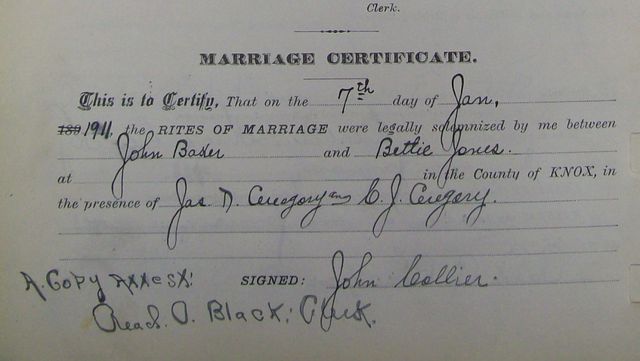 Clerk.
MARRIAGE CERTIFICATE.
This is to Certify, That on the 7th day of Jan,
189 1911, the RITES OF MARRIAGE were legally solemnized by me between
John Bader and Bettie Jones.
at in the County of KNOX, in
the presence of Jas D. and C. J.
A Copy Attest: SIGNED: John Collier.
Read. O. Black: Clerk.